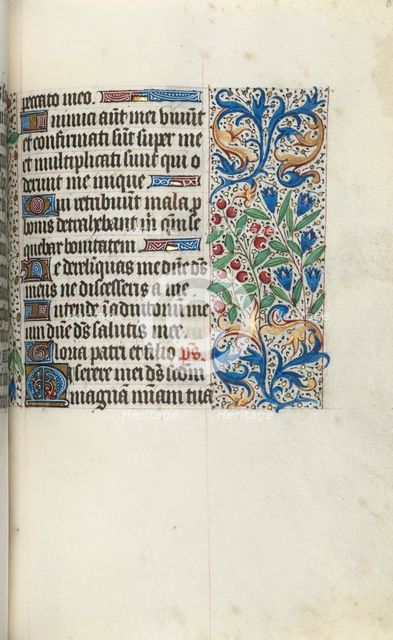 peccato meo.
Inimici aũt mei viuũt
et confirmati sũt super me
et multiplicati sunt qui o
derunt me inique
Qui retribuũt mala p
bonis detrahebant m̃ qm̃ se
quebar bonitatem
Ne derelinquas me dñe ds̃
meus ne discesseris a me
Intende in adiutoriũ me
um dñe ds̃ salutis mee.
Gloria patri et filio p̃s.
Miserere mei ds̃ scd̃m
magnã mĩam tuã
heritage
Heritage
Heritage